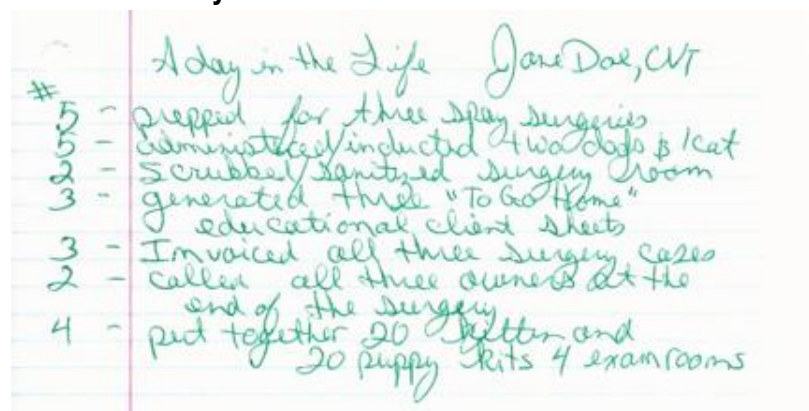 A day in the Life Jane Doe, CVT
#
5 - prepped for three spay surgeries
5 - administered/inducted two dogs & 1 cat
2 - scrubbed/sanitized surgery room
3 - generated three "To Go Home"
educational client sheets
3 - Invoiced all three surgery cases
2 - called all three owners at the
end of the surgery
4 - put together 20 kitten and
20 puppy kits 4 exam rooms